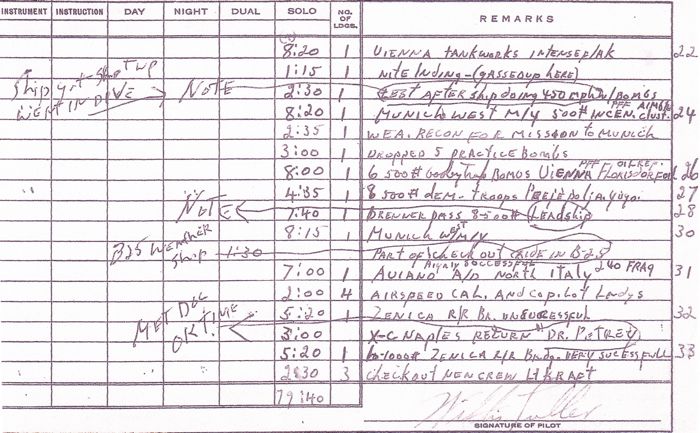 INSTRUMENT INSTRUCTION DAY NIGHT DUAL SOLO NO. OF LDGS. REMARKS
8:20 1 VIENNA TANKWORKS INTENSE FLAK 22
1:15 1 NITE LNDING-(GASSED UP HERE)
WENT IN DIVE NOTE 2:30 1 TEST AFTER SHIP DOING 450 MPH W/BOMBS
8:20 1 MUNICH WEST M/Y 500# INCEN. CLUST. PFF 24
2:35 1 WEA. RECON FOR MISSION TO MUNICH
3:00 1 DROPPED 5 PRACTICE BOMBS
8:00 1 6 500# BOMBS VIENNA PFF OIL REF. 26
4:35 1 8 500# DEM. TROOPS 27
NOTE 7:40 1 BRENNER PASS 8-500# LEADSHIP 28
8:15 1 MUNICH WEST M/Y 30
WEATHER SHIP 1:30 PART OF CHECK OUT RIDE IN B-25
7:00 1 AVIANO A/D NORTH ITALY 240 FRAG HIGHLY SUCCESSFUL 31
2:00 4 AIRSPEED CAL. AND COPILOT LNDGS
MET DOC OK TIME 5:20 1 ZENICA R/R BR. UNSUCESSFUL 32
3:00 X-C NAPLES RETURN DR. PETREY
5:20 1 6-1000# ZENICA R/R BRDG. VERY SUCESSFULL 33
2:30 3 CHECKOUT NEW CREW
79:40
SIGNATURE OF PILOT